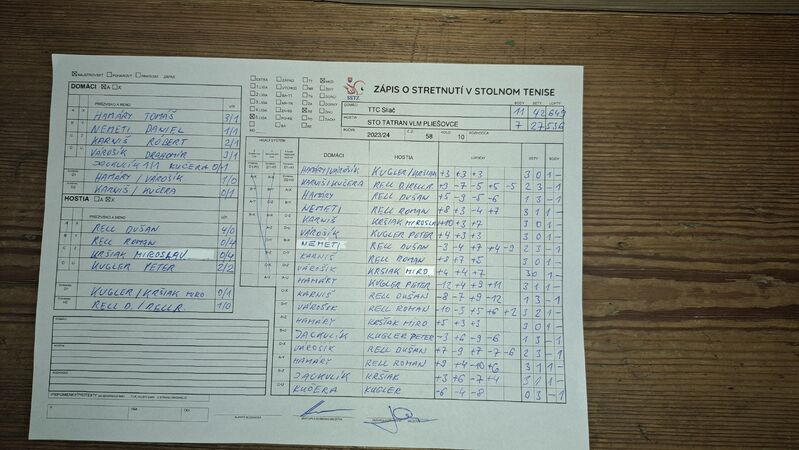 MAJSTROVSKÝ POHÁROVÝ PRIATEĽSKÝ ZÁPAS
DOMÁCI A X
PRIEZVISKO A MENO VÍŤ.
HAMÁRY TOMÁŠ 3/1
NEMETI DANIEL 1/1
KARNIŠ ROBERT 2/1
VÁROŠÍK DRAHOMÍR 3/1
JACKULÍK 1/1 KUČERA 0/1
HAMÁRY / VÁROŠÍK 1/0
KARNIŠ / KUČERA 0/1
HOSTIA A X
PRIEZVISKO A MENO VÍŤ.
RELL DUŠAN 4/0
RELL ROMAN 0/4
KRŠIAK MIROSLAV 0/4
KUGLER PETER 2/2
KUGLER / KRŠIAK MIRO 0/1
RELL D. / RELL R. 1/0
DOMÁCI:
HOSTIA:
PRIPOMIENKY/PROTESTY
SSTZ
ZÁPIS O STRETNUTÍ V STOLNOM TENISE
DOMÁCI BODY SETY LOPTY
TTC Sliač 11 42 649
HOSTIA
STO TATRAN VLM PLIEŠOVCE 7 27 536
ROČNÍK 2023/24 Č.Z. 58 KOLO 10 ROZHODCA
HRACÍ SYSTÉM DOMÁCI HOSTIA LOPTIČKY SETY BODY
HAMÁRY/VÁROŠÍK KUGLER/KRŠIAK +3 +3 +3 3 0 1 -
KARNIŠ/KUČERA RELL D./RELL R. +3 -7 -5 +5 -5 2 3 - 1
HAMÁRY RELL DUŠAN +5 -9 -5 -6 1 3 - 1
NEMETI RELL ROMAN +8 +3 -4 +7 3 1 1 -
KARNIŠ KRŠIAK MIROSLAV +10 +3 +7 3 0 1 -
VÁROŠÍK KUGLER PETER +4 +3 +3 3 0 1 -
NEMETI RELL DUŠAN -3 -4 +7 +4 -9 2 3 - 1
KARNIŠ RELL ROMAN +8 +7 +5 3 0 1 -
VÁROŠÍK KRŠIAK MIRO +4 +4 +7 3 0 1 -
HAMÁRY KUGLER PETER -12 +4 +9 +11 3 1 1 -
KARNIŠ RELL DUŠAN -8 -7 +9 -12 1 3 - 1
VÁROŠÍK RELL ROMAN -10 -3 +5 +6 +2 3 2 1 -
HAMÁRY KRŠIAK MIRO +5 +3 +3 3 0 1 -
JACKULÍK KUGLER PETER -3 +6 -9 -6 1 3 - 1
VÁROŠÍK RELL DUŠAN +7 -9 +7 -7 -6 2 3 - 1
HAMÁRY RELL ROMAN +9 +4 -10 +6 3 1 1 -
JACKULÍK KRŠIAK +3 +6 -7 +4 3 1 1 -
KUČERA KUGLER -6 -4 -8 0 3 - 1